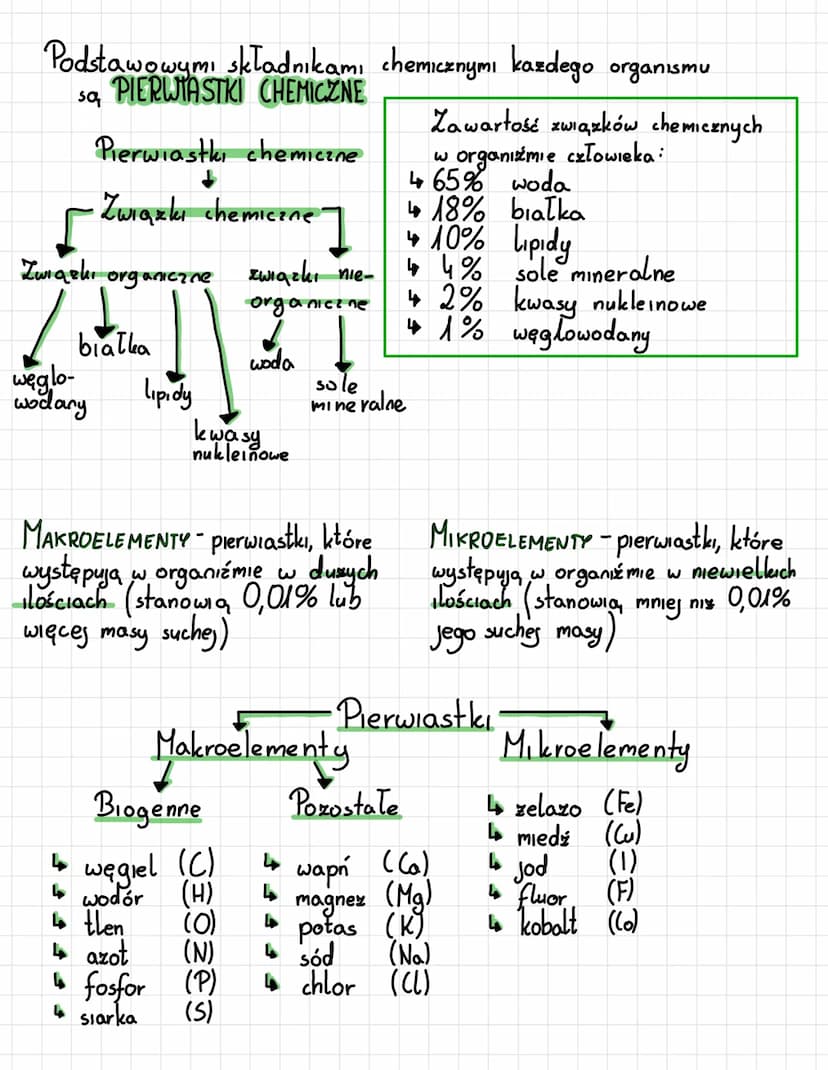 Podstawowymi składnikami chemicznymi każdego organismu
są PIERWIASTKI CHEMICZNE
Pierwiastki chemiczne
Związki chemiczne
Związki organiczne
związki nie-
organiczne
węglo-
wodany
białka
lipidy
kwasy
nukleinowe
woda
sole
mineralne
Zawartość związków chemicznych
w organiźmie człowieka:
↳ 65% woda
↳ 18% białka
↳ 10% lipidy
↳ 4% sole mineralne
↳ 2% kwasy nukleinowe
↳ 1% węglowodany
MAKROELEMENTY - pierwiastki, które
występują w organiźmie w dużych
ilościach (stanowią 0,01% lub
więcej masy suchej)
MIKROELEMENTY - pierwiastki, które
występują w organiźmie w niewielkich
ilościach (stanowią mniej niż 0,01%
jego suchej masy)
Pierwiastki
Makroelementy
Mikroelementy
Biogenne
↳ węgiel (C)
↳ wodór (H)
↳ tlen (O)
↳ azot (N)
↳ fosfor (P)
↳ siarka (S)
Pozostałe
↳ wapń (Ca)
↳ magnez (Mg)
↳ potas (K)
↳ sód (Na)
↳ chlor (Cl)
↳ żelazo (Fe)
↳ miedź (Cu)
↳ jod (I)
↳ fluor (F)
↳ kobalt (Co)